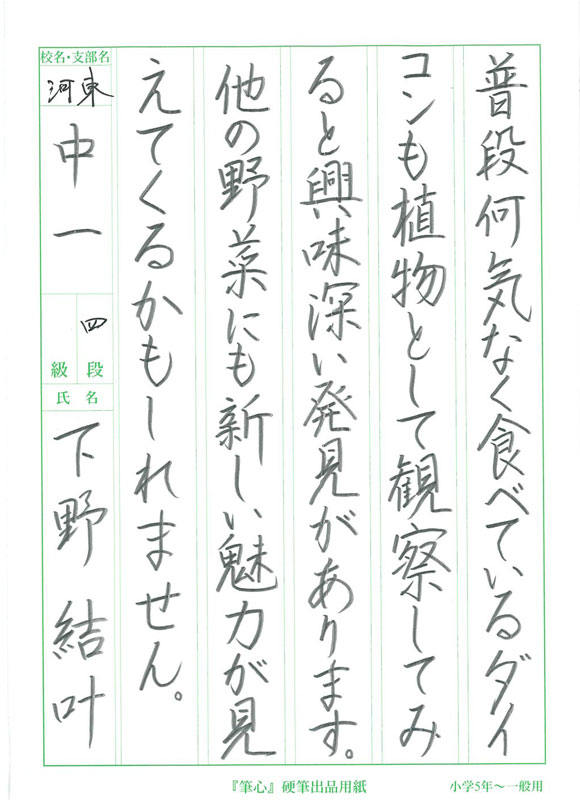 普段何気なく食べているダイ
コンも植物として観察してみ
ると興味深い発見があります。
他の野菜にも新しい魅力が見
えてくるかもしれません。
校名・支部名
河東
中一
四
段
級
氏名
下野結叶
『筆心』硬筆出品用紙
小学5年～一般用